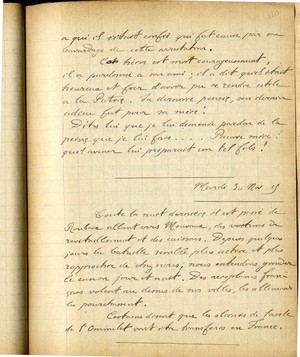 à qui il s'était confié qui fut cause par son
bavardage de cette arrestation.
Ce héros est mort courageusement,
il a pardonné à mon ami; il a dit qu'il était
heureux et fier d'avoir pu se rendre utile
à la Patrie. Sa dernière pensée, son dernier
adieu fut pour sa mère!
Dites lui que je lui demande pardon de la
peine que je lui fais... Pauvre mère!
quel avenir lui préparait un tel fils!
Mardi Mai 15
Toute la nuit dernière il est passé de
Roulers allant vers Menin, des voitures de
ravitaillement et des caissons. Depuis quelques
jours la bataille semble plus active et plus
rapprochée de chez nous; nous entendons gronder
le canon jour et nuit. Des aéroplanes fran-
çais volent au dessus de nos villes, les allemands
les pourchassent.
Certains disent que les blessés de
de vont être transférés en France.